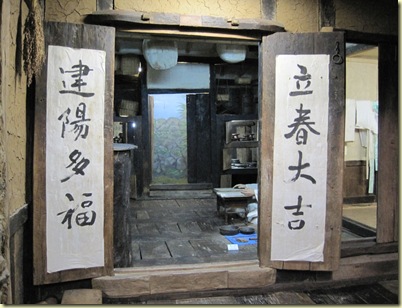 立春大吉
建陽多福